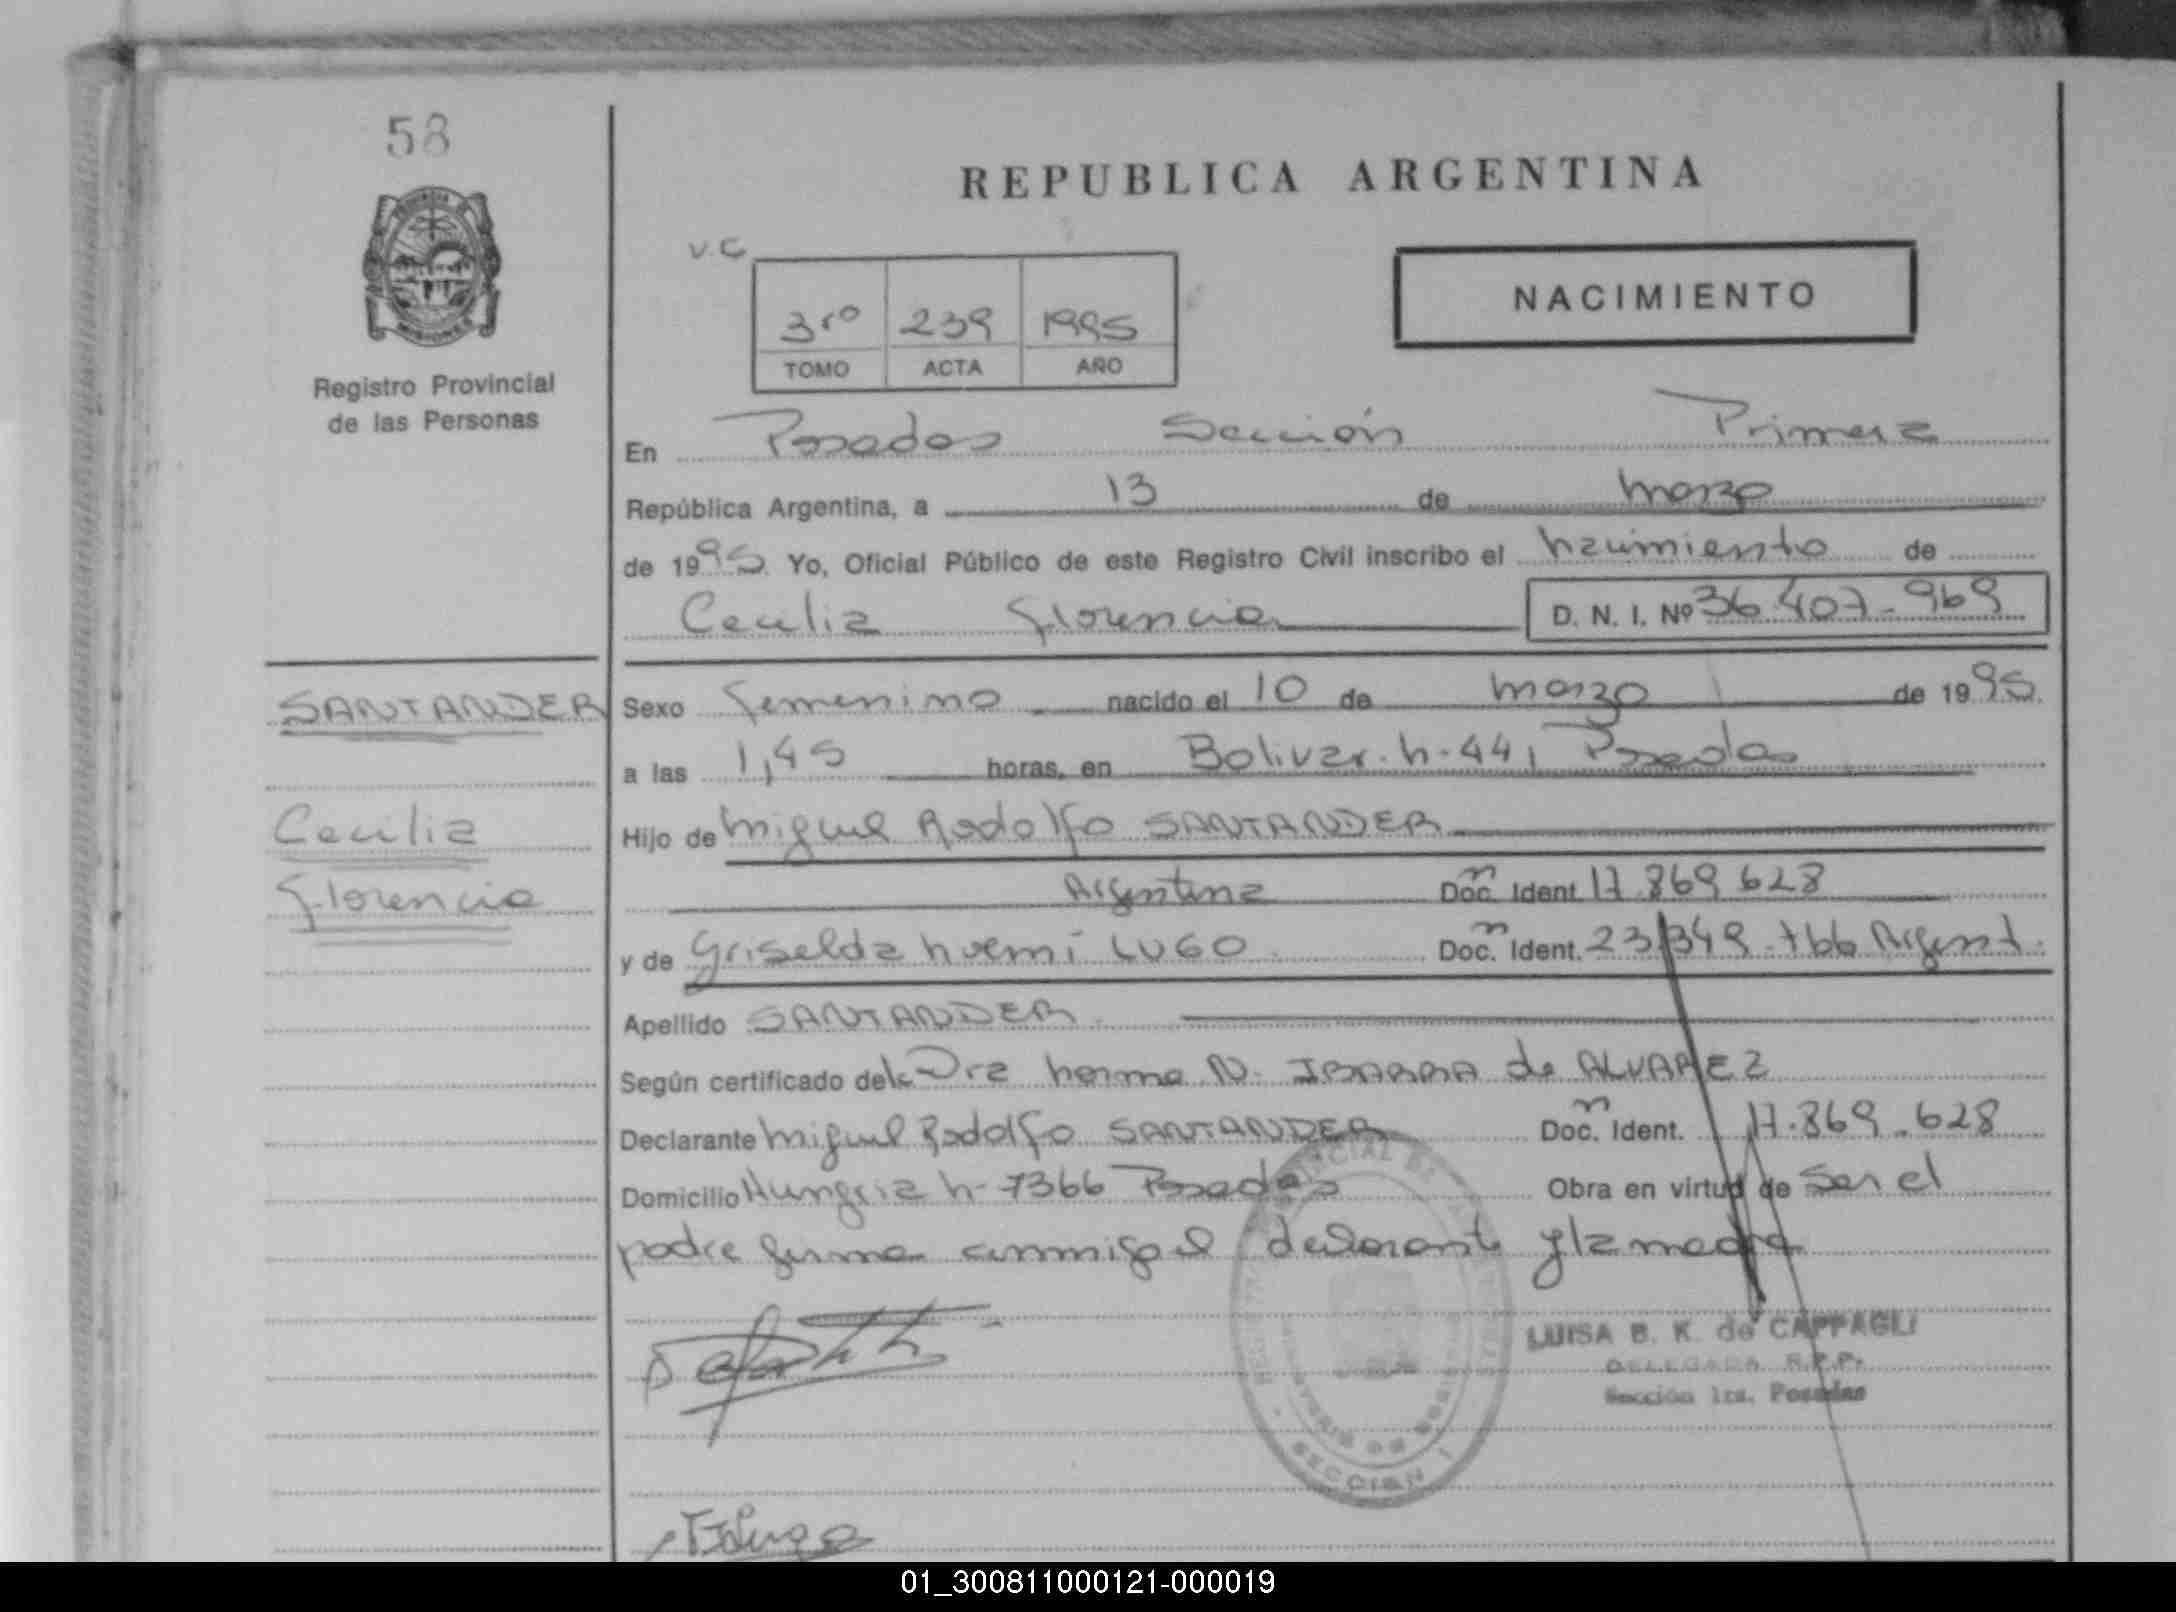 58
REPUBLICA ARGENTINA
V.C
NACIMIENTO
3ro 239 1995
TOMO ACTA AÑO
Registro Provincial
de las Personas
En Posadas Sección Primera
República Argentina, a 13 de marzo
de 1995 Yo, Oficial Público de este Registro Civil inscribo el nacimiento de
Cecilia Florencia D. N. I. Nº 36.407.969
SANTANDER
Cecilia
Florencia
Sexo femenino nacido el 10 de marzo de 1995.
a las 1,45 horas, en Bolivar. n-441 Posadas
Hijo de Miguel Rodolfo SANTANDER
Argentina Doc. Ident. 17.869.628
y de Griselda Noemí LUGO Doc. Ident. 23.349.766 Argent.
Apellido SANTANDER
Según certificado de la Dra Norma N. IBARRA de ALVAREZ
Declarante Miguel Rodolfo SANTANDER Doc. Ident. 17.869.628
Domicilio Hungria n-7366 Posadas Obra en virtud de ser el
padre firma conmigo el declarante y la madre
LUISA B. K. de CAPPAGLI
DELEGADA R.P.P.
Sección 1ra. Posadas
SECCION 1
01_300811000121-000019